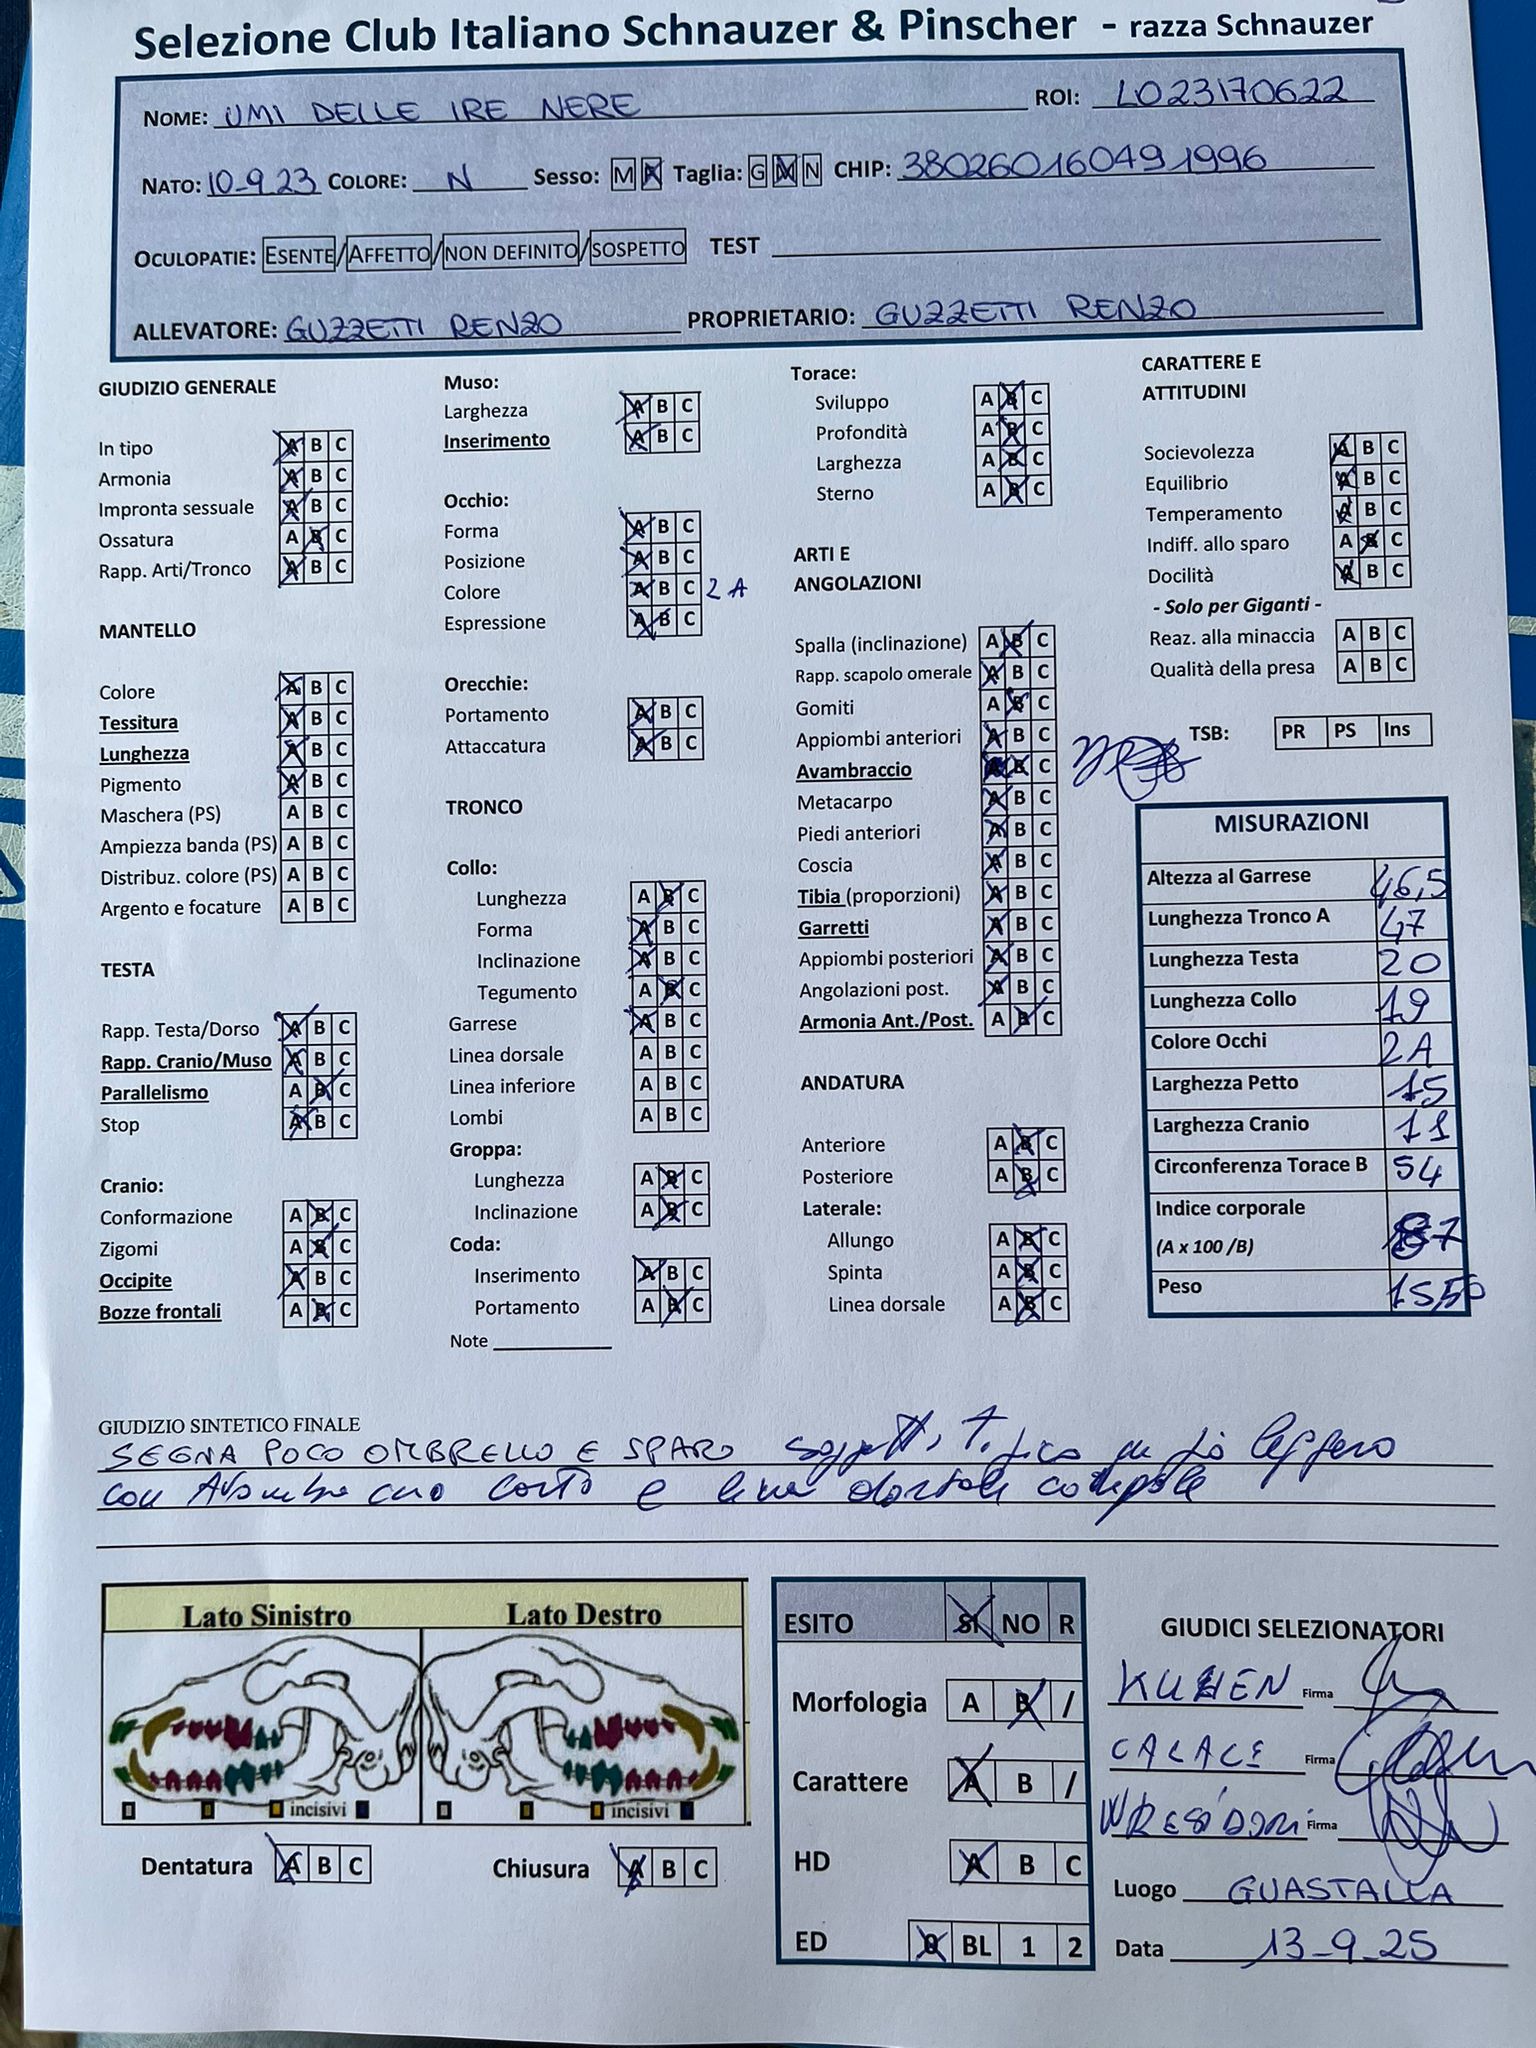 Selezione Club Italiano Schnauzer & Pinscher - razza Schnauzer
NOME: UMI DELLE IRE NERE ROI: LO23170622
NATO: 10-9-23 COLORE: N Sesso: M Taglia: G N CHIP: 380260160491996
OCULOPATIE: ESENTE/AFFETTO/NON DEFINITO/SOSPETTO TEST
ALLEVATORE: GUZZETTI RENZO PROPRIETARIO: GUZZETTI RENZO
GIUDIZIO GENERALE
In tipo A B C
Armonia A B C
Impronta sessuale A B C
Ossatura A B C
Rapp. Arti/Tronco A B C
MANTELLO
Colore A B C
Tessitura A B C
Lunghezza A B C
Pigmento A B C
Maschera (PS) A B C
Ampiezza banda (PS) A B C
Distribuz. colore (PS) A B C
Argento e focature A B C
TESTA
Rapp. Testa/Dorso A B C
Rapp. Cranio/Muso A B C
Parallelismo A B C
Stop A B C
Cranio:
Conformazione A B C
Zigomi A B C
Occipite A B C
Bozze frontali A B C
Muso:
Larghezza A B C
Inserimento A B C
Occhio:
Forma A B C
Posizione A B C
Colore A B C 2 A
Espressione A B C
Orecchie:
Portamento A B C
Attaccatura A B C
TRONCO
Collo:
Lunghezza A B C
Forma A B C
Inclinazione A B C
Tegumento A B C
Garrese A B C
Linea dorsale A B C
Linea inferiore A B C
Lombi A B C
Groppa:
Lunghezza A B C
Inclinazione A B C
Coda:
Inserimento A B C
Portamento A B C
Note
Torace:
Sviluppo A B C
Profondità A B C
Larghezza A B C
Sterno A B C
ARTI E
ANGOLAZIONI
Spalla (inclinazione) A B C
Rapp. scapolo omerale A B C
Gomiti A B C
Appiombi anteriori A B C
Avambraccio A B C
Metacarpo A B C
Piedi anteriori A B C
Coscia A B C
Tibia (proporzioni) A B C
Garretti A B C
Appiombi posteriori A B C
Angolazioni post. A B C
Armonia Ant./Post. A B C
ANDATURA
Anteriore A B C
Posteriore A B C
Laterale:
Allungo A B C
Spinta A B C
Linea dorsale A B C
CARATTERE E
ATTITUDINI
Socievolezza A B C
Equilibrio A B C
Temperamento A B C
Indiff. allo sparo A B C
Docilità A B C
- Solo per Giganti -
Reaz. alla minaccia A B C
Qualità della presa A B C
TSB: PR PS Ins
MISURAZIONI
Altezza al Garrese 46,5
Lunghezza Tronco A 47
Lunghezza Testa 20
Lunghezza Collo 19
Colore Occhi 2A
Larghezza Petto 15
Larghezza Cranio 11
Circonferenza Torace B 54
Indice corporale
(A x 100 /B) 87
Peso 15,50
GIUDIZIO SINTETICO FINALE
SEGNA POCO OMBRELLO E SPARO leggero
con corto e linea dorsale
Lato Sinistro Lato Destro
incisivi incisivi
Dentatura A B C Chiusura A B C
ESITO SI NO R
Morfologia A B /
Carattere A B /
HD A B C
ED 0 BL 1 2
GIUDICI SELEZIONATORI
Firma
CALACE Firma
Firma
Luogo GUASTALLA
Data 13-9-25